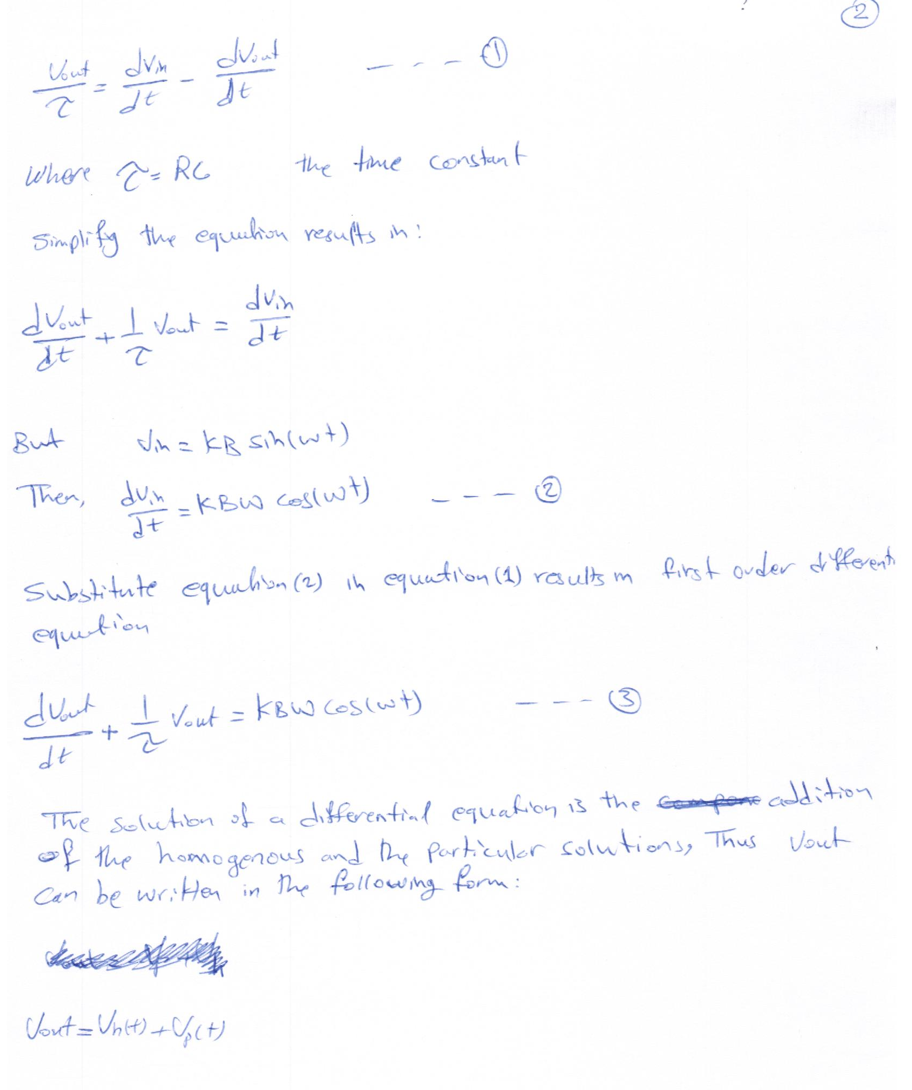 ②
Vout/τ = dVin/dt - dVout/dt - - - - ①
Where τ = RC the time constant
Simplify the equation results in:
dVout/dt + 1/τ Vout = dVin/dt
But Vin = KB sin(wt)
Then, dVin/dt = KBW cos(wt) - - - ②
Substitute equation (2) in equation (1) results in first order different
equation
dVout/dt + 1/τ Vout = KBW cos(wt) - - - ③
The solution of a differential equation is the addition
of the homogenous and the particular solutions, Thus Vout
can be written in the following form:
Vout = Vh(t) + Vp(t)